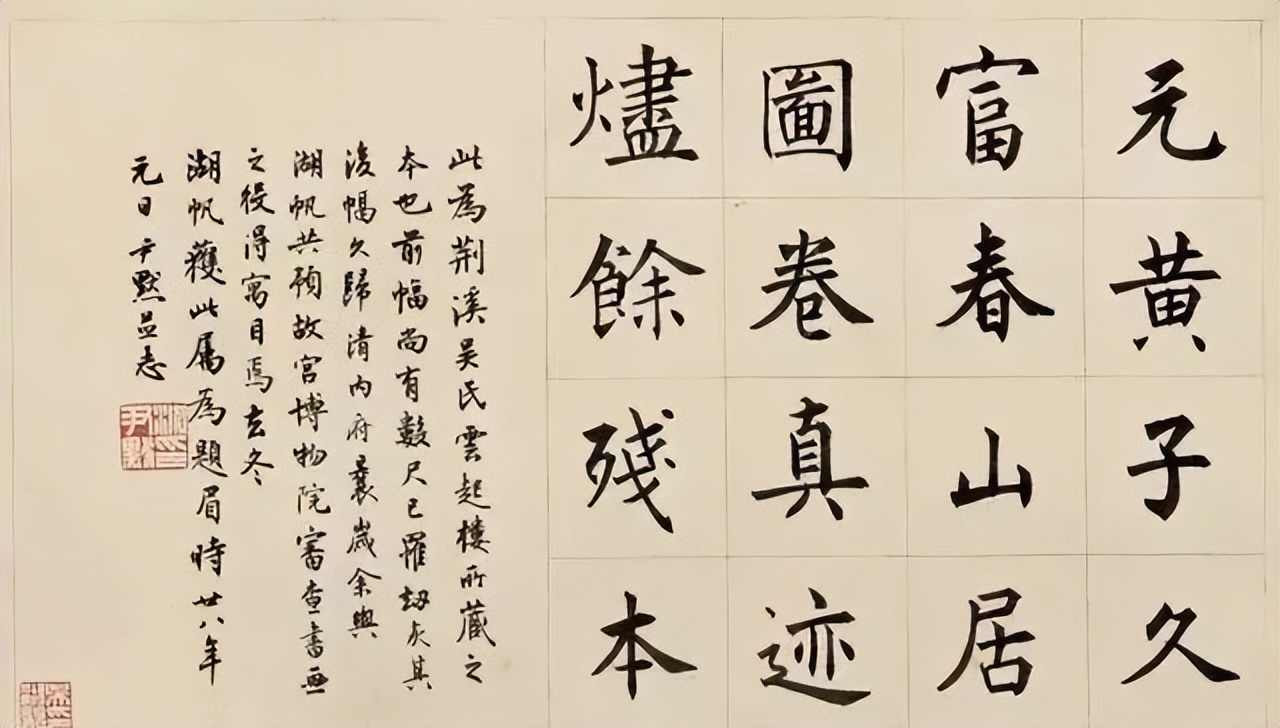 元黃子久
富春山居
圖卷真迹
燼餘殘本
此為荆溪吴氏雲起樓所藏之
本也前幅尚有數尺已罹劫灰其
後幅久歸清内府曩歲余與
湖帆共預故宫博物院審查書画
之役得寓目焉去冬
湖帆獲此属為題眉時廿八年
元日尹默並志